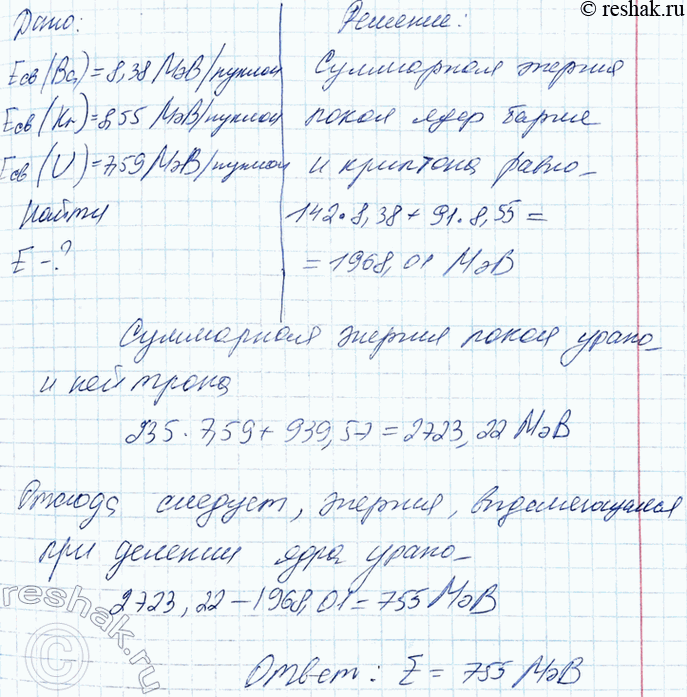 © reshak.ru
Дано:
Eсв(Ba)=8,38 МэВ/нуклон
Eсв(Kr)=8,55 МэВ/нуклон
Eсв(U)=7,59 МэВ/нуклон
Найти
E-?
Решение:
Суммарная энергия
покоя ядер бария
и криптона равно
142·8,38+91·8,55=
=1968,01 МэВ
Суммарная энергия покоя урана
и нейтрона
235·7,59+939,57=2723,22 МэВ
Отсюда следует, энергия, выделяющаяся
при делении ядра урана
2723,22-1968,01=755 МэВ
Ответ: E=755 МэВ
reshak.ru
©